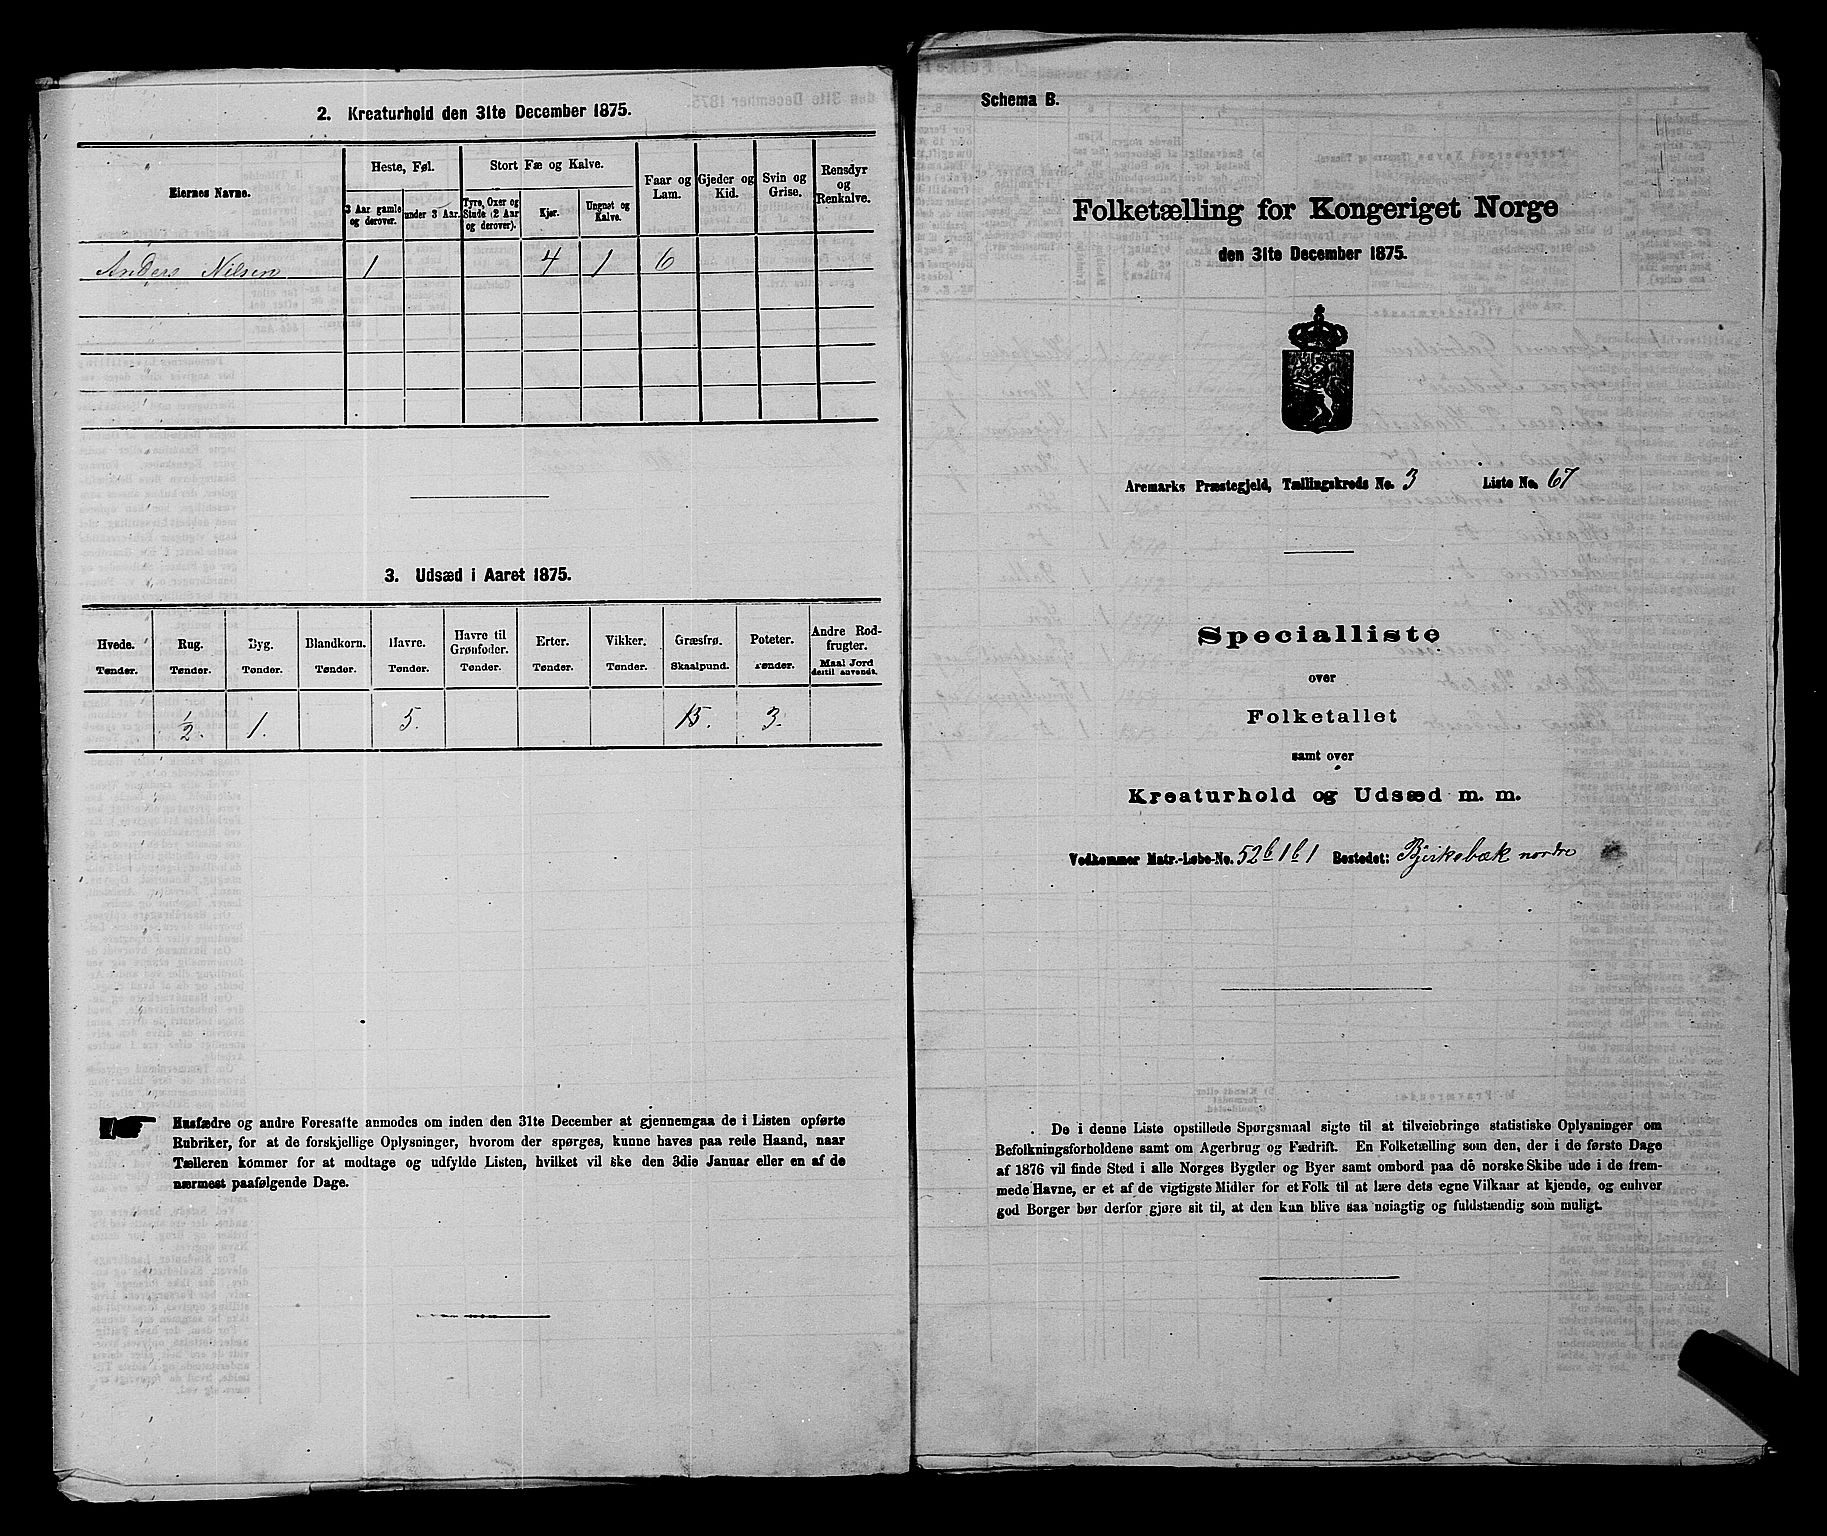 2. Kreaturhold den 31te December 1875.
Eiernes Navne.
Heste, Føl.
Stort Fæ og Kalve.
Faar og Lam.
Gjeder og Kid.
Svin og Grise.
Rensdyr og Renkalve.
3 Aar gamle og derover.
under 3 Aar.
Tyre, Oxer og Stude (2 Aar og derover).
Kjør.
Ungnøt og Kalve.
Anders Nilsen 1 4 1 6
3. Udsæd i Aaret 1875.
Hvede. Rug. Byg. Blandkorn. Havre. Havre til Grønfoder. Erter. Vikker. Græsfrø. Poteter. Andre Rodfrugter.
Tønder. Tønder. Tønder. Tønder. Tønder. Tønder. Tønder. Tønder. Skaalpund. Tønder. Maal Jord dertil anvendt.
1/2. 1. 5. 15. 3.
Husfædre og andre Foresatte anmodes om inden den 31te December at gjennemgaa de i Listen opførte
Rubriker, for at de forskjellige Oplysninger, hvorom der spørges, kunne haves paa rede Haand, naar
Tælleren kommer for at modtage og udfylde Listen, hvilket vil ske den 3die Januar eller en af de
nærmest paafølgende Dage.
Schema B.
Folketælling for Kongeriget Norge
den 31te December 1875.
Aremarks Præstegjeld, Tællingskreds No. 3 Liste No. 67
Specialliste
over
Folketallet
samt over
Kreaturhold og Udsæd m. m.
Vedkommer Matr.-Løbe-No. 52b1b1 Bostedet: Bjirkebæk nordre
De i denne Liste opstillede Spørgsmaal sigte til at tilveiebringe statistiske Oplysninger om
Befolkningsforholdene samt om Agerbrug og Fædrift. En Folketælling som den, der i de første Dage
af 1876 vil finde Sted i alle Norges Bygder og Byer samt ombord paa de norske Skibe ude i de frem-
mede Havne, er et af de vigtigste Midler for et Folk til at lære dets egne Vilkaar at kjende, og enhver
god Borger bør derfor gjøre sit til, at den kan blive saa nøiagtig og fuldstændig som muligt.